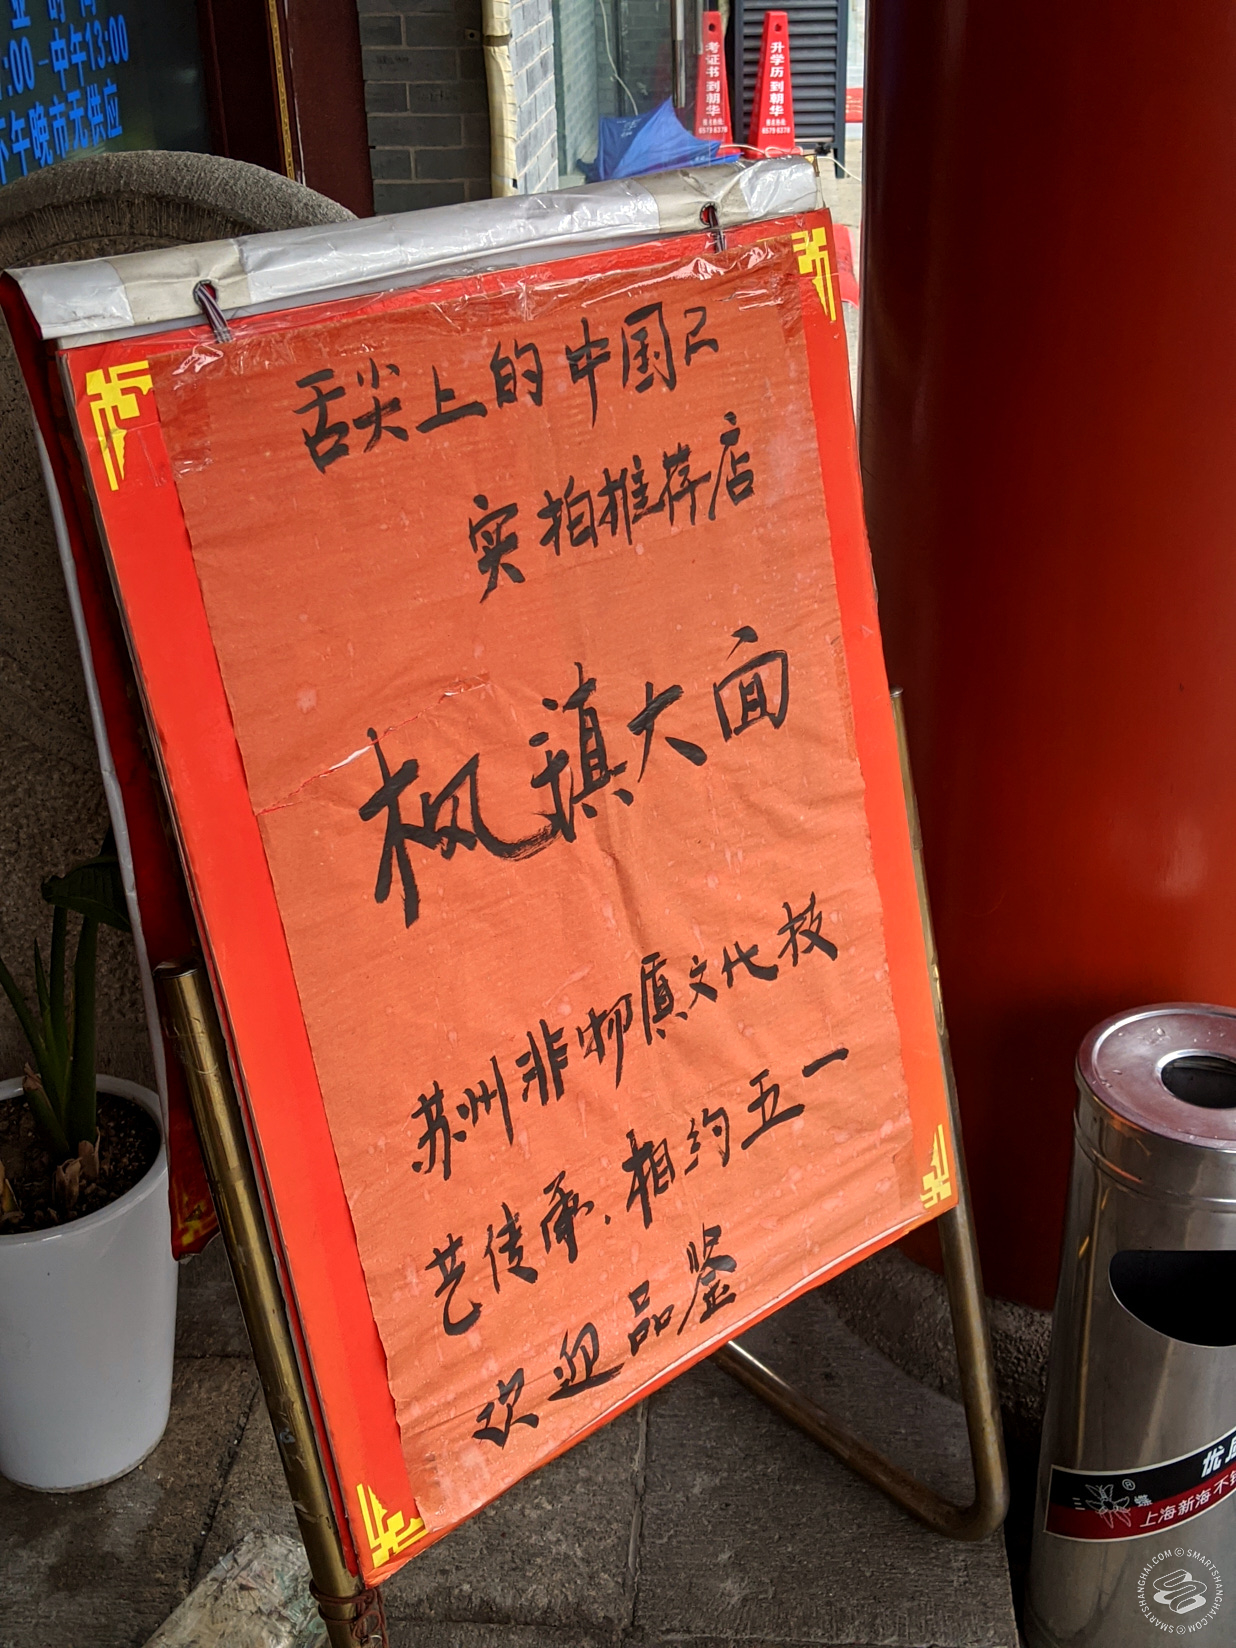 :00-中午13:00
下午晚市无供应
考证书到朝华
6579 6378
升学历到朝华
6579 6378
舌尖上的中国2
实拍推荐店
枫镇大面
苏州非物质文化技
艺传承.相约五一
欢迎品鉴
三蝶
®
上海新海不
SMARTSHANGHAI.COM © SMARTSHANGHAI.COM ©